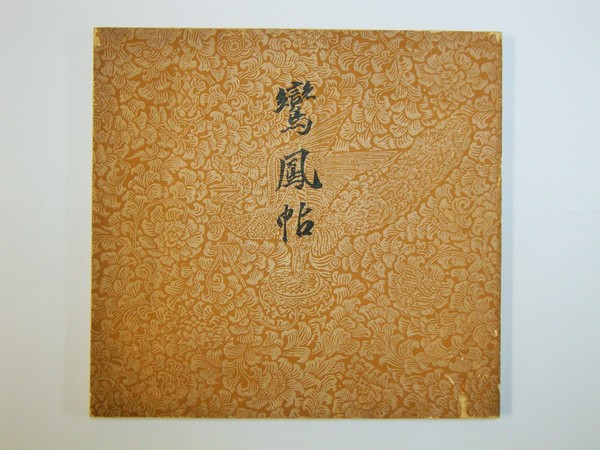 鸞鳳帖